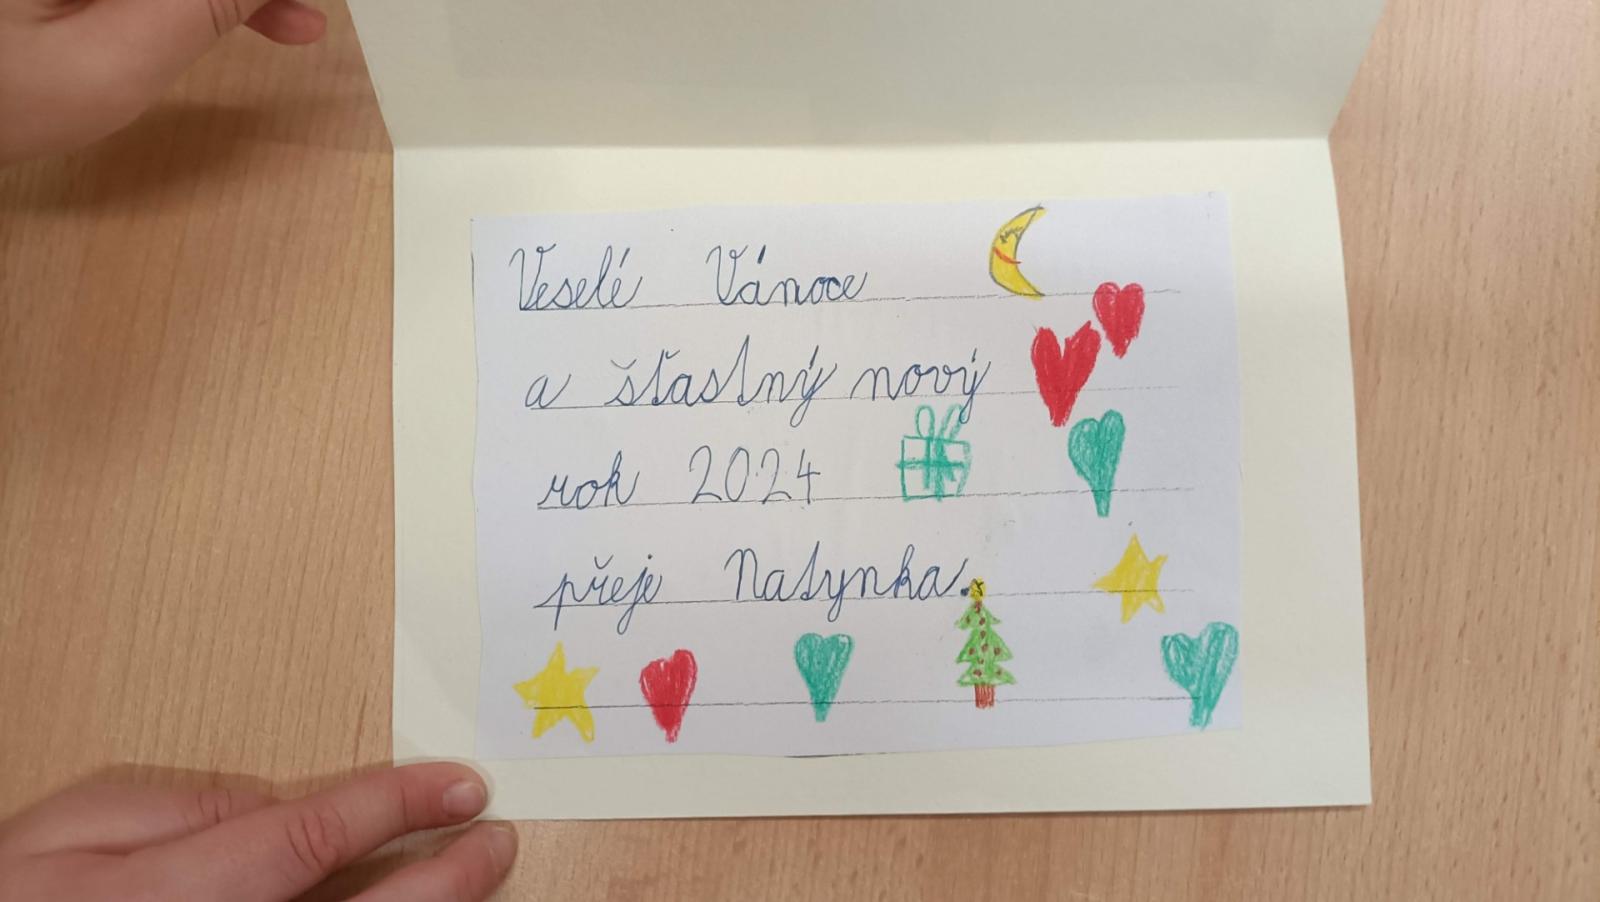 Veselé Vánoce
a šťastný nový
rok 2024
přeje Natynka.